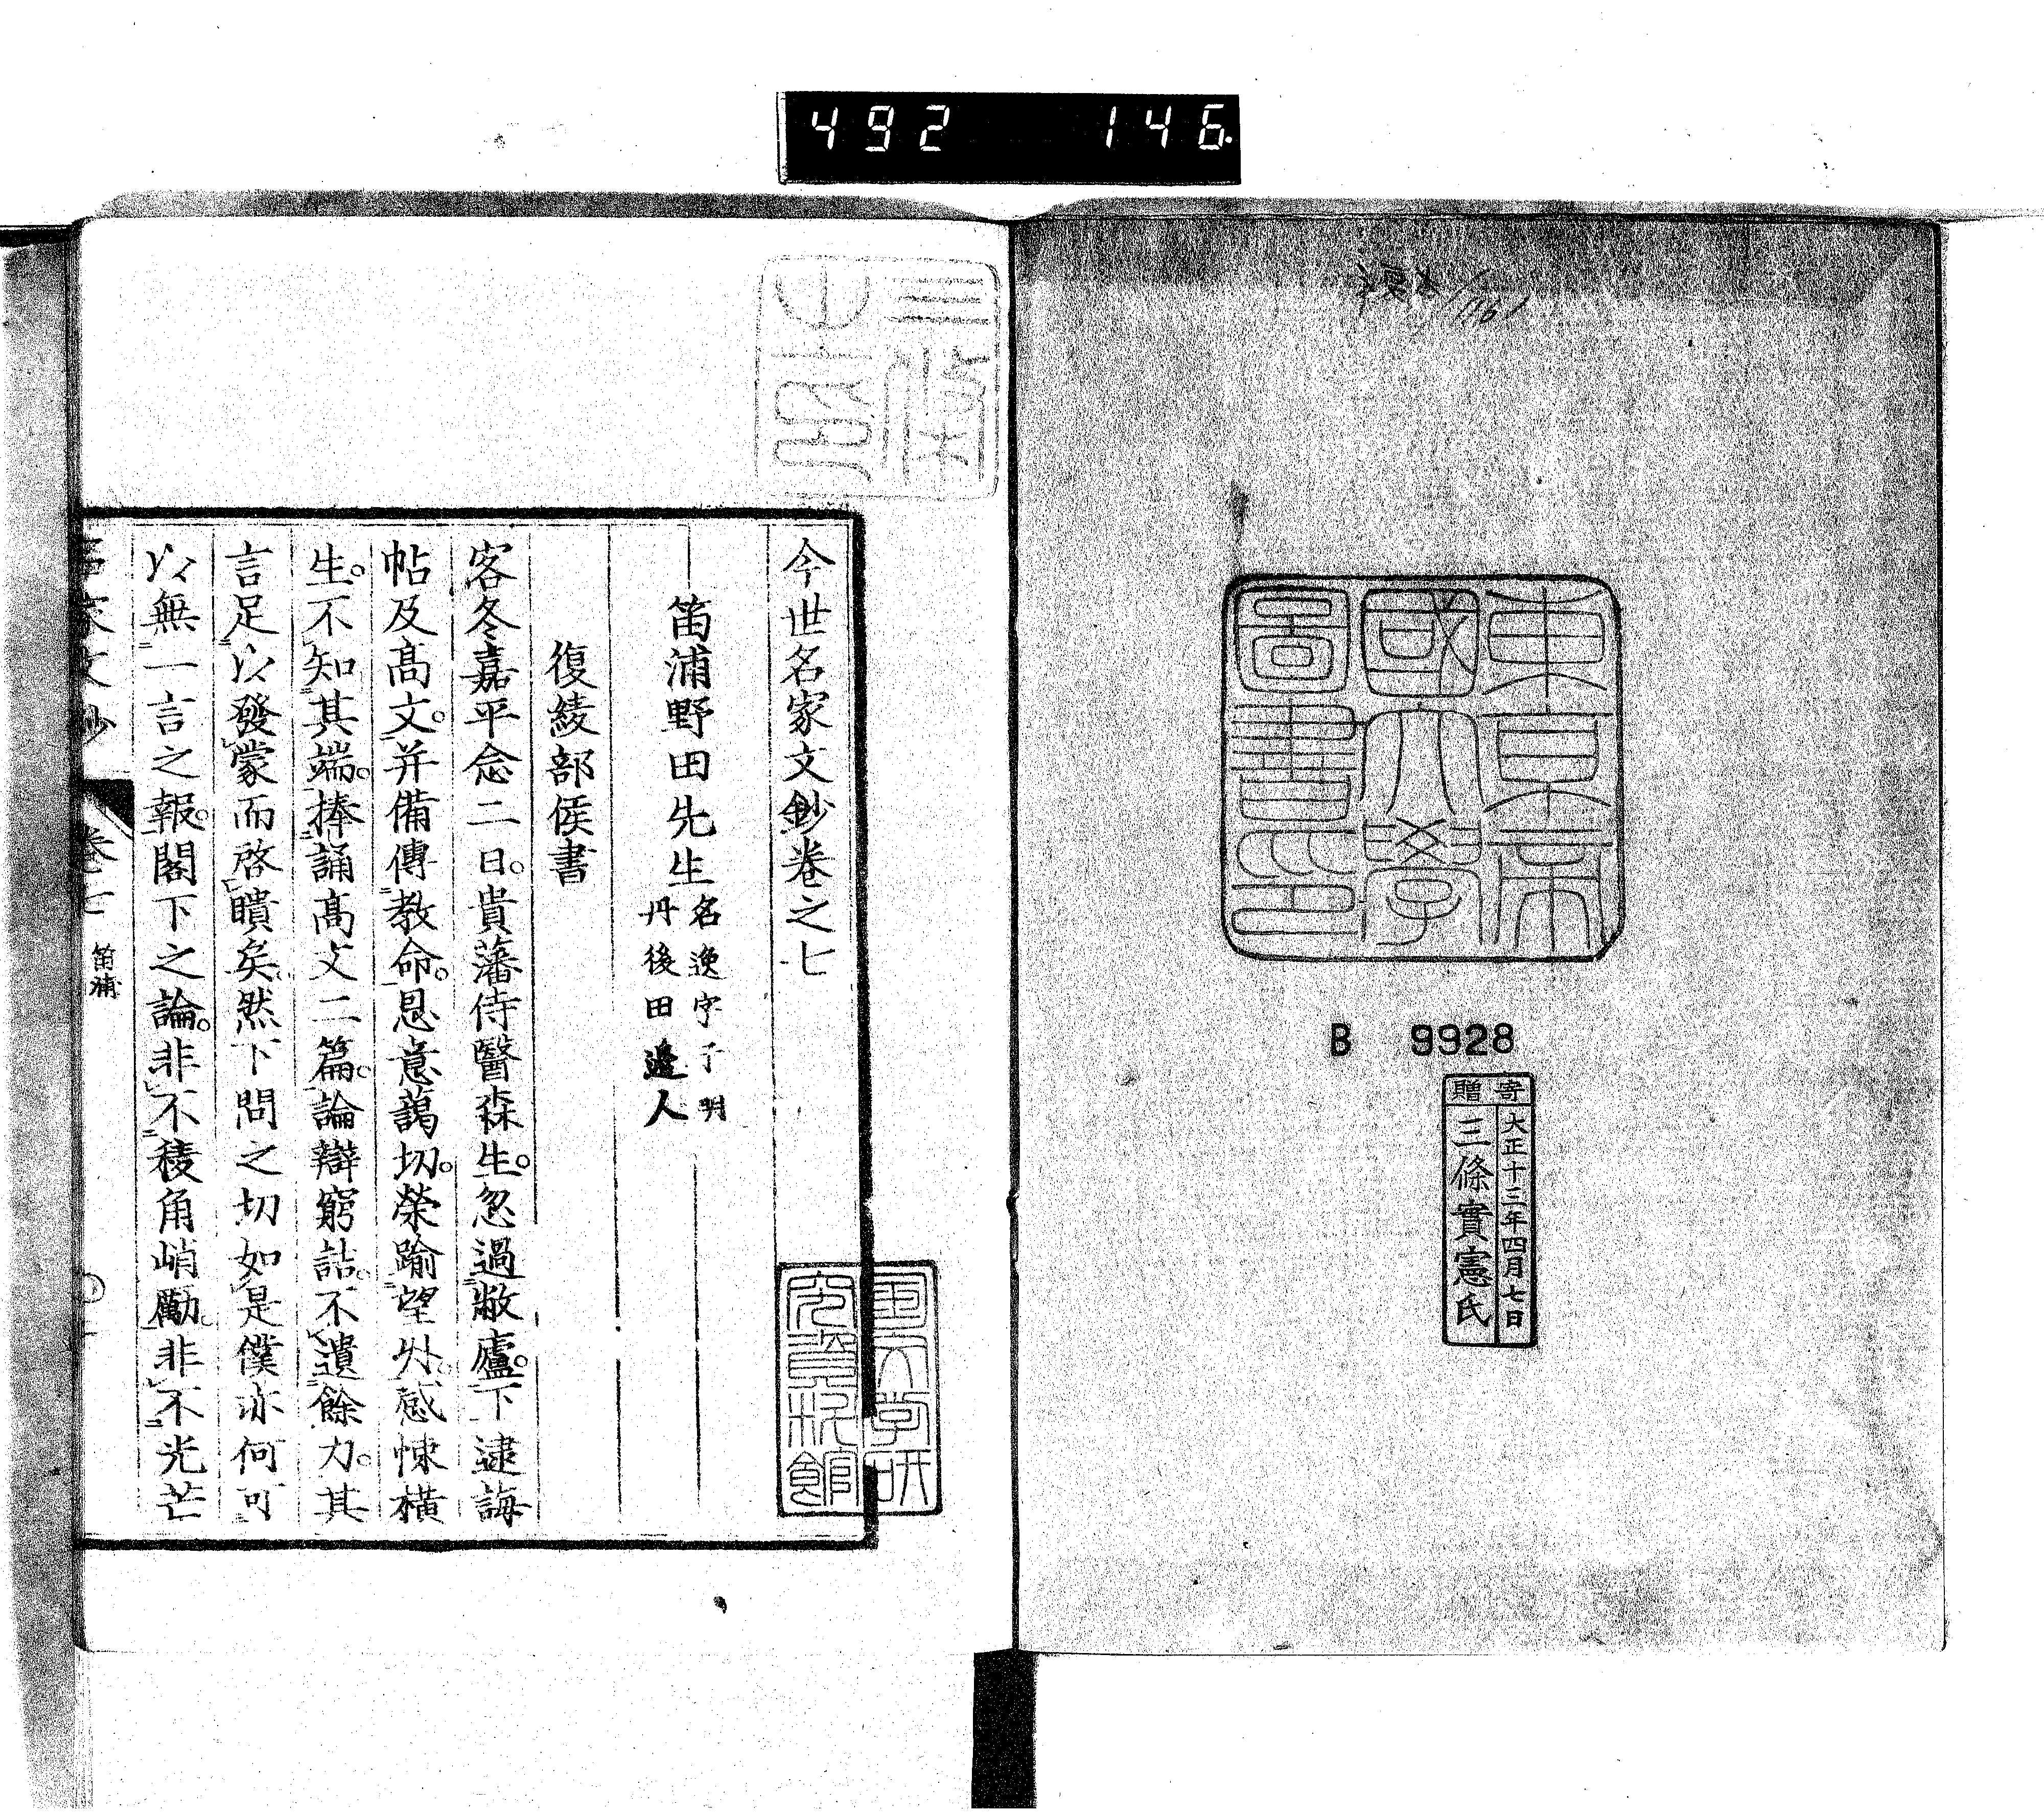 492 146
東京帝
國大學
圖書之印
B 9928
寄贈
大正十三年四月七日
三條實憲氏
今世名家文鈔卷之七
笛浦野田先生 名逸字子明
丹後田邊人
復綾部侯書
客冬嘉平念二日。貴藩侍醫森生。忽過敝廬。下逮誨
帖及高文。并備傳教命。恩意藹切。榮踰望外。感悚橫
生。不知其端。捧誦高文二篇。論辯窮詰。不遺餘力。其
言足以發蒙而啓瞶矣。然下問之切如是僕亦何可
以無一言之報。閣下之論。非不稜角峭勵。非不光芒
名家文鈔 卷七 笛浦
国文学研
究資料館